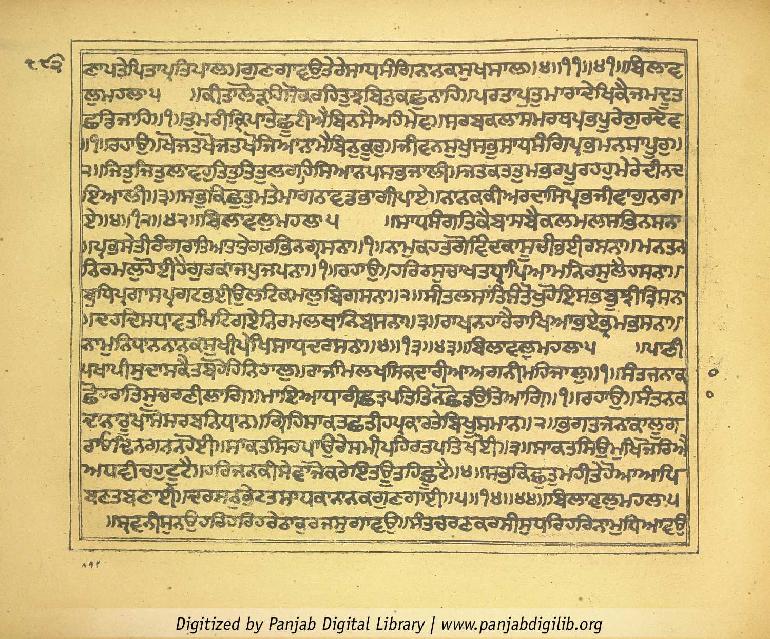 ੧੬੩
ਣਪਤੇਪਿਤਾਪ੍ਰਤਿਪਾਲ॥ਗੁਣਗਾਵਉਤੇਰੇਸਾਧਸੰਗਿਨਾਨਕਸੁਖਸਾਲ॥੪॥੧੧॥੪੧॥ਬਿਲਾਵ
ਲੁਮਹਲਾ੫ ॥ਕੀਤਾਲੋੜਹਿਸੋਕਰਹਿਤੁਝਬਿਨੁਕਛੁਨਾਹਿ॥ਪਰਤਾਪੁਤੁਮਾਰਾਦੇਖਿਕੈਜਮਦੂਤ
ਛਡਿਜਾਹਿ॥੧॥ਤੁਮਰੀਕ੍ਰਿਪਾਤੇਛੂਟੀਐਬਿਨਸੈਅਹੰਮੇਵ॥ਸਰਬਕਲਾਸਮਰਥਪ੍ਰਭਪੂਰੇਗੁਰਦੇਵ
॥੧॥ਰਹਾਉ॥ਖੋਜਤਖੋਜਤਖੋਜਿਆਨਾਮੈਬਿਨੁਕੂਰੁ॥ਜੀਵਨਸੁਖੁਸਭੁਸਾਧਸੰਗਿਪ੍ਰਭਮਨਸਾਪੂਰੁ॥
੨॥ਜਿਤੁਜਿਤੁਲਾਵਹੁਤਿਤੁਤਿਤੁਲਗਹਿਸਿਆਨਪਸਭਜਾਲੀ॥ਜਤਕਤਤੁਮਭਰਪੂਰਹਹੁਮੇਰੇਦੀਨਦ
ਇਆਲੀ॥੩॥ਸਭੁਕਿਛੁਤੁਮਤੇਮਾਗਨਾਵਡਭਾਗੀਪਾਏ॥ਨਾਨਕਕੀਅਰਦਾਸਿਪ੍ਰਭਜੀਵਾਗੁਨਗਾ
ਏ॥੪॥੧੨॥੪੨॥ਬਿਲਾਵਲੁਮਹਲਾ੫ ॥ਸਾਧਸੰਗਤਿਕੈਬਾਸਬੈਕਲਮਲਸਭਿਨਸਨਾ
॥ਪ੍ਰਭਸੇਤੀਰੰਗਿਰਾਤਿਆਤਾਤੇਗਰਭਿਨਗ੍ਰਸਨਾ॥੧॥ਨਾਮੁਕਹਤਗੋਵਿੰਦਕਾਸੂਚੀਭਈਰਸਨਾ॥ਮਨਤਨ
ਨਿਰਮਲਹੋਈਹੈਗੁਰਕਾਜਪੁਜਪਨਾ॥੧॥ਰਹਾਉ॥ਹਰਿਰਸੁਚਾਖਤਧ੍ਰਾਪਿਆਮਨਿਰਸੁਲੈਹਸਨਾ॥
ਬੁਧਿਪ੍ਰਗਾਸਪ੍ਰਗਟਭਈਉਲਟਿਕਮਲੁਬਿਗਸਨਾ॥੨॥ਸੀਤਲਸਾਂਤਿਸੰਤੋਖੁਹੋਇਸਭਬੂਝੀਤ੍ਰਿਸਨ
॥ਦਹਦਿਸਧਾਵਤਮਿਟਿਗਏਨਿਰਮਲਥਾਨਿਬਸਨਾ॥੩॥ਰਾਖਨਹਾਰੈਰਾਖਿਆਭਏਭ੍ਰਮਭਸਨਾ॥
ਨਾਮੁਨਿਧਾਨਨਾਨਕਸੁਖੀਪੇਖਿਸਾਧਦਰਸਨਾ॥੪॥੧੩॥੪੩॥ਬਿਲਾਵਲੁਮਹਲਾ੫ ॥ਪਾਣੀ
ਪਖਾਪੀਸੁਦਾਸਕੈਤਬਹੋਹਿਨਿਹਾਲੁ॥ਰਾਜਮਿਲਖਸਿਕਦਾਰੀਆਅਗਨੀਮਹਿਜਾਲੁ॥੧॥ਸੰਤਜਨਾਕ
ਛੋਹਰਾਤਿਸੁਚਰਣੀਲਾਗਿ॥ਮਾਇਆਧਾਰੀਛਤ੍ਰਪਤਿਤਿਨਛੋਡਉਤਿਆਗਿ॥੧॥ਰਹਾਉ॥ਸੰਤਨਕ
ਦਾਨਾਰੂਖਾਸੋਸਰਬਨਿਧਾਨ॥ਗ੍ਰਿਹਿਸਾਕਤਛਤੀਹਪ੍ਰਕਾਰਤੇਬਿਖੂਸਮਾਨ॥੨॥ਭਗਤਜਨਾਕਾਲੂਗ
ਰਾਓਢਿਨਗਨਨਹੋਈ॥ਸਾਕਤਸਿਰਪਾਉਰੇਸਮੀਪਹਿਰਤਪਤਿਖੋਈ॥੩॥ਸਾਕਤਸਿਉਮੁਖਿਜੋਰਿਐ
ਅਧਵੀਚਹੁਟੂਟੈ॥ਹਰਿਜਨਕੀਸੇਵਾਜੋਕਰੇਇਤਊਤਹਿਛੂਟੈ॥੪॥ਸਭਕਿਛੁਤੁਮਹੀਤੇਹੋਆਆਪਿ
ਬਣਤਬਣਾਈ॥ਦਰਸਨੁਭੇਟਤਸਾਧਕਾਨਾਨਕਗੁਣਗਾਈ॥੫॥੧੪॥੪੪॥ਬਿਲਾਵਲੁਮਹਲਾ੫
॥ਸ੍ਰਵਨੀਸੁਨਉਹਰਿਹਰਿਹਰੇਠਾਕੁਰਜਸੁਗਾਵਉ॥ਸੰਤਚਰਣਕਰਸੀਸੁਧਰਿਹਰਿਨਾਮੁਧਿਆਵਉ
Digitized by Panjab Digital Library | www.panjabdigilib.org